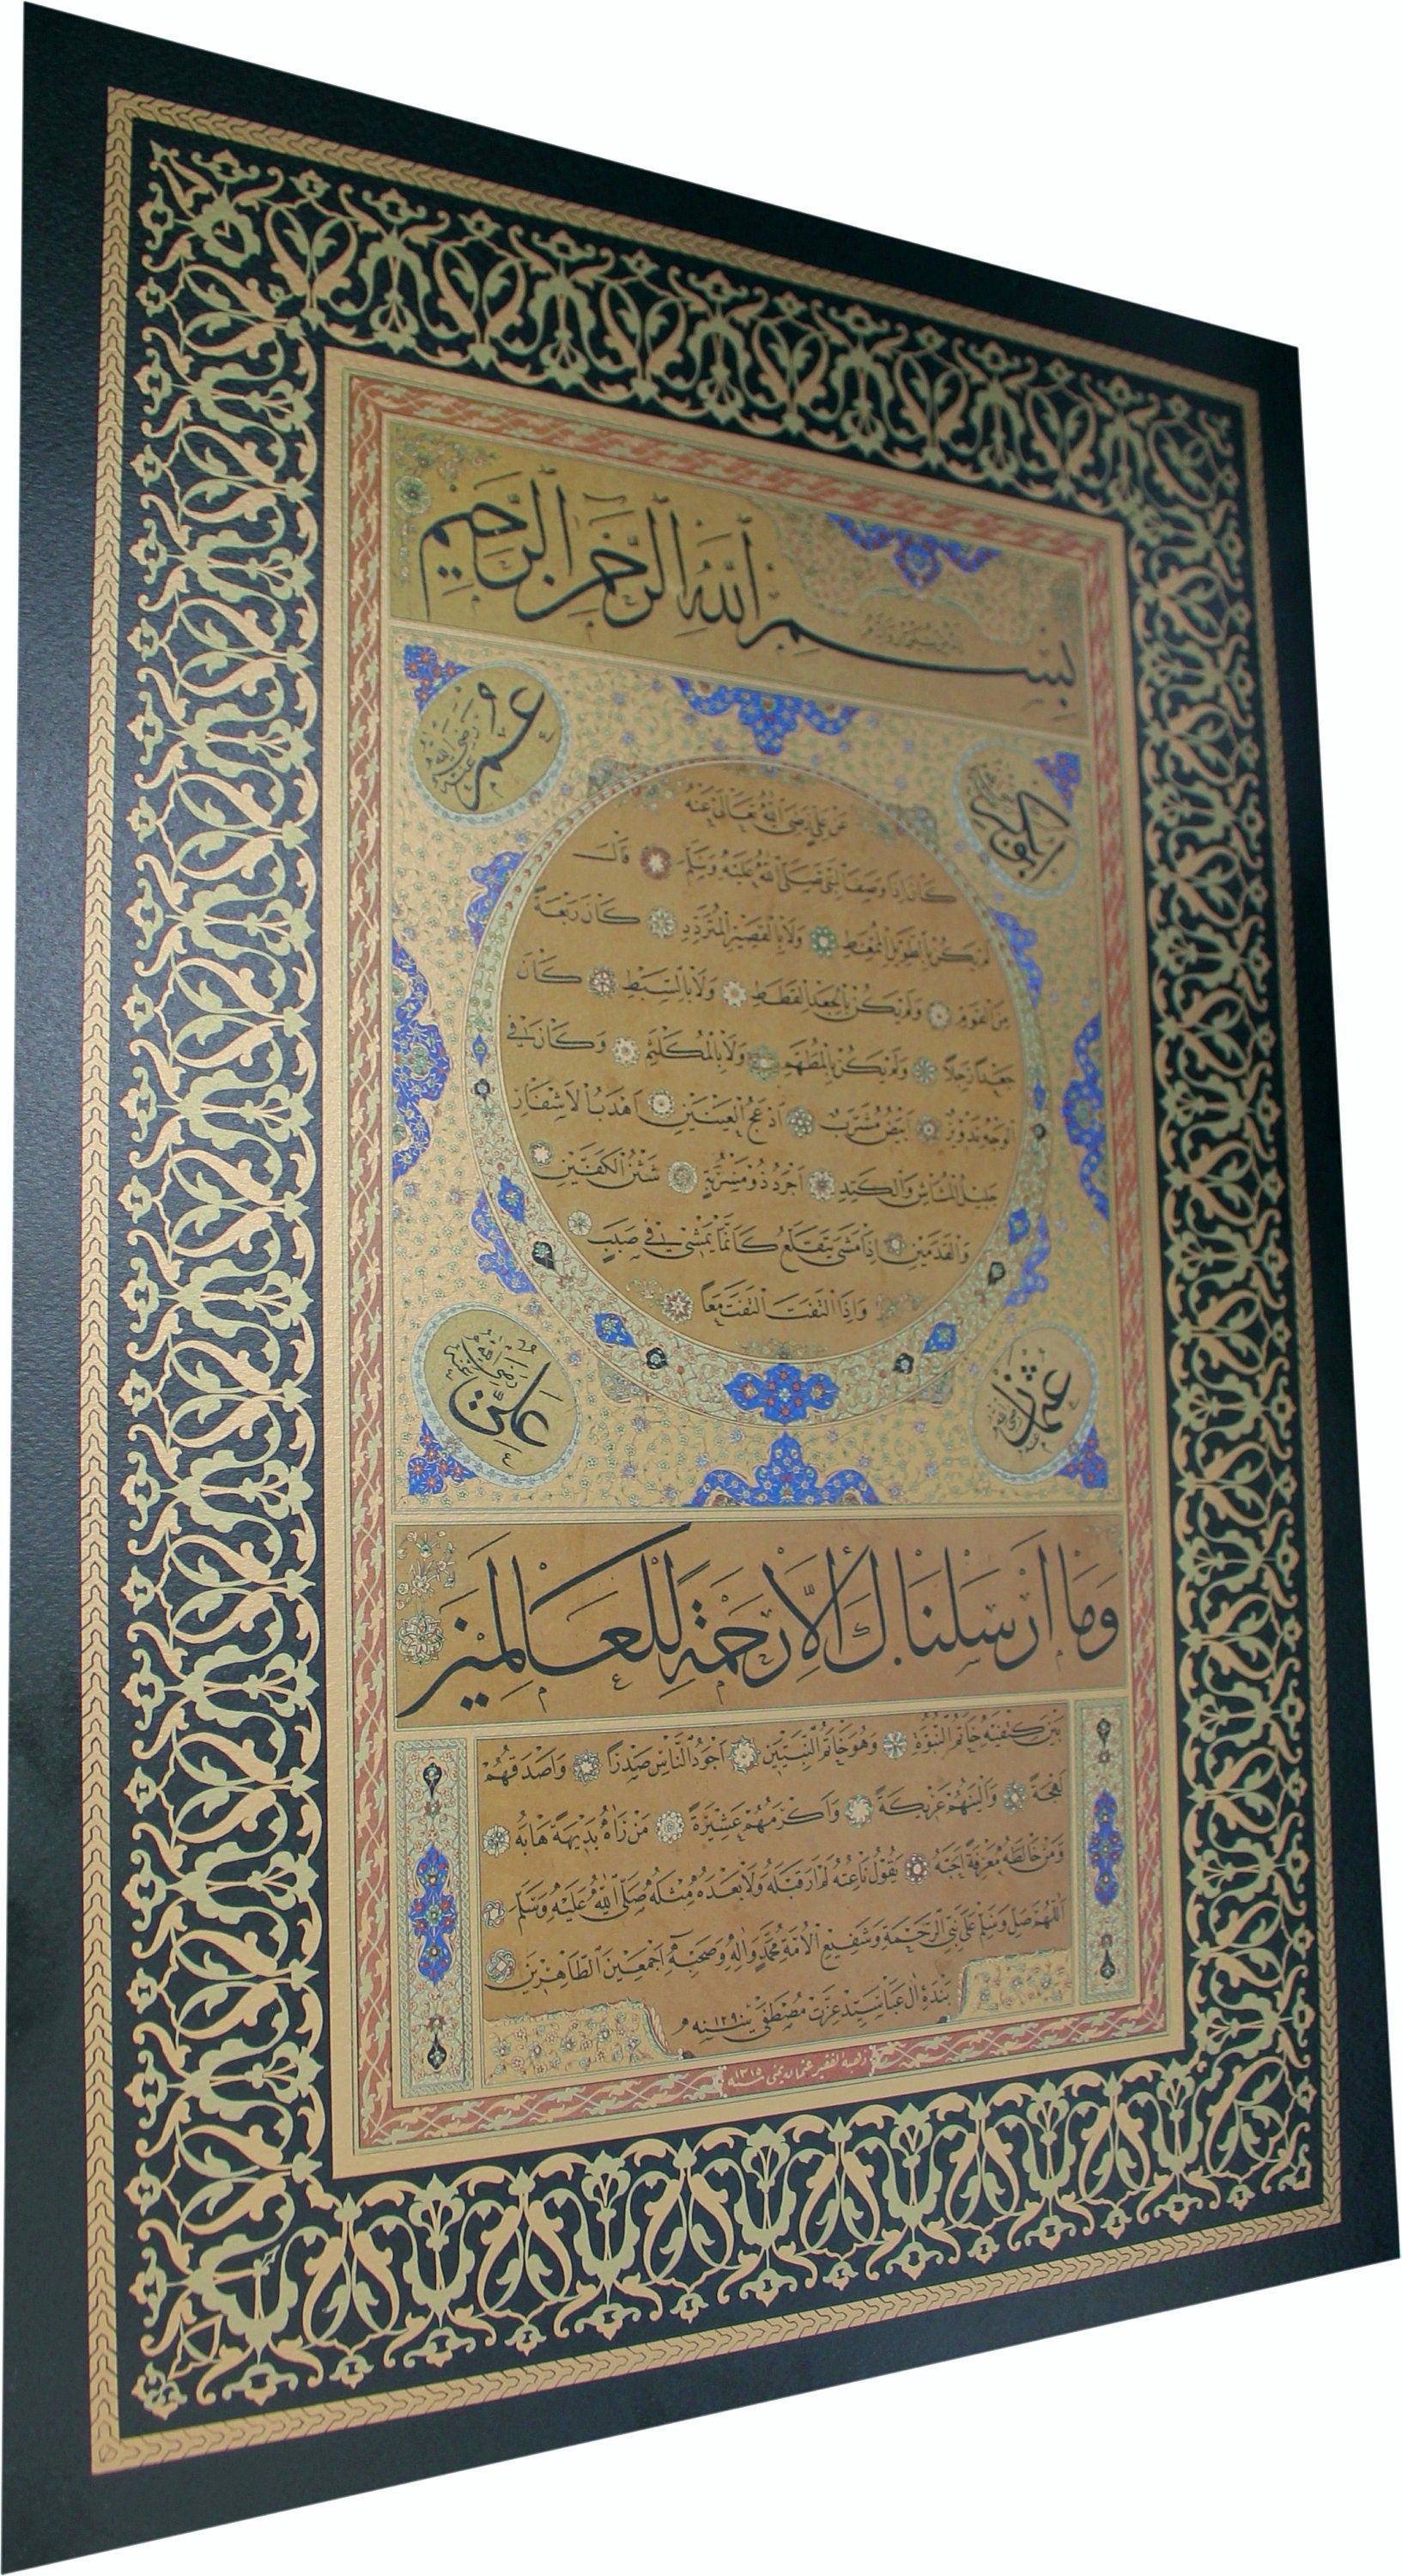 بِسْمِ اللّٰهِ الرَّحْمٰنِ الرَّحِيمِ
ابوبكر
عُمَر رَضِيَ اللّٰهُ عَنْهُ
عَنْ عَلِيٍّ رَضِيَ اللّٰهُ تَعَالَى عَنْهُ
كَانَ اِذَا وَصَفَ النَّبِيَّ صَلَّى اللّٰهُ عَلَيْهِ وَسَلَّمَ قَالَ
لَمْ يَكُنْ بِالطَّوِيلِ الْمُمَغَّطِ وَلَا بِالْقَصِيرِ الْمُتَرَدِّدِ كَانَ رَبْعَةً
مِنَ الْقَوْمِ وَلَمْ يَكُنْ بِالْجَعْدِ الْقَطَطِ وَلَا بِالسَّبْطِ كَانَ
جَعْدًا رَجِلًا وَلَمْ يَكُنْ بِالْمُطَهَّمِ وَلَا بِالْمُكَلْثَمِ وَكَانَ فِي
الْوَجْهِ تَدْوِيرٌ اَبْيَضُ مُشْرَبٌ اَدْعَجُ الْعَيْنَيْنِ اَهْدَبُ الْاَشْفَارِ
جَلِيلُ الْمُشَاشِ وَالْكَتَدِ اَجْرَدُ ذُو مَسْرُبَةٍ شَثْنُ الْكَفَّيْنِ
وَالْقَدَمَيْنِ اِذَا مَشَى يَتَقَلَّعُ كَاَنَّمَا يَمْشِي فِي صَبَبٍ
وَاِذَا الْتَفَتَ الْتَفَتَ مَعًا
عثمان رضى الله عنه
عَلِيّ رَضِيَ اللّٰهُ عَنْهُ
وَمَا اَرْسَلْنَاكَ اِلَّا رَحْمَةً لِلْعَالَمِينَ
بَيْنَ كَتِفَيْهِ خَاتَمُ النُّبُوَّةِ وَهُوَ خَاتَمُ النَّبِيِّينَ اَجْوَدُ النَّاسِ صَدْرًا وَاَصْدَقُهُمْ
لَهْجَةً وَاَلْيَنُهُمْ عَرِيكَةً وَاَكْرَمُهُمْ عَشِيرَةً مَنْ رَاٰهُ بَدِيهَةً هَابَهُ
وَمَنْ خَالَطَهُ مَعْرِفَةً اَحَبَّهُ يَقُولُ نَاعِتُهُ لَمْ اَرَ قَبْلَهُ وَلَا بَعْدَهُ مِثْلَهُ صَلَّى اللّٰهُ عَلَيْهِ وَسَلَّمَ
اَللّٰهُمَّ صَلِّ وَسَلِّمْ عَلَى نَبِيِّ الرَّحْمَةِ وَشَفِيعِ الْاُمَّةِ مُحَمَّدٍ وَاٰلِهِ وَصَحْبِهِ اَجْمَعِينَ الطَّاهِرِينَ
بَنْدَۀِ اٰلِ عَبَا سَيِّدْ عِزَّتْ مُصْطَفٰى سنه ١٢٩٠
ذهبه الفقير عثمان يمنى سنه ١٣١٥